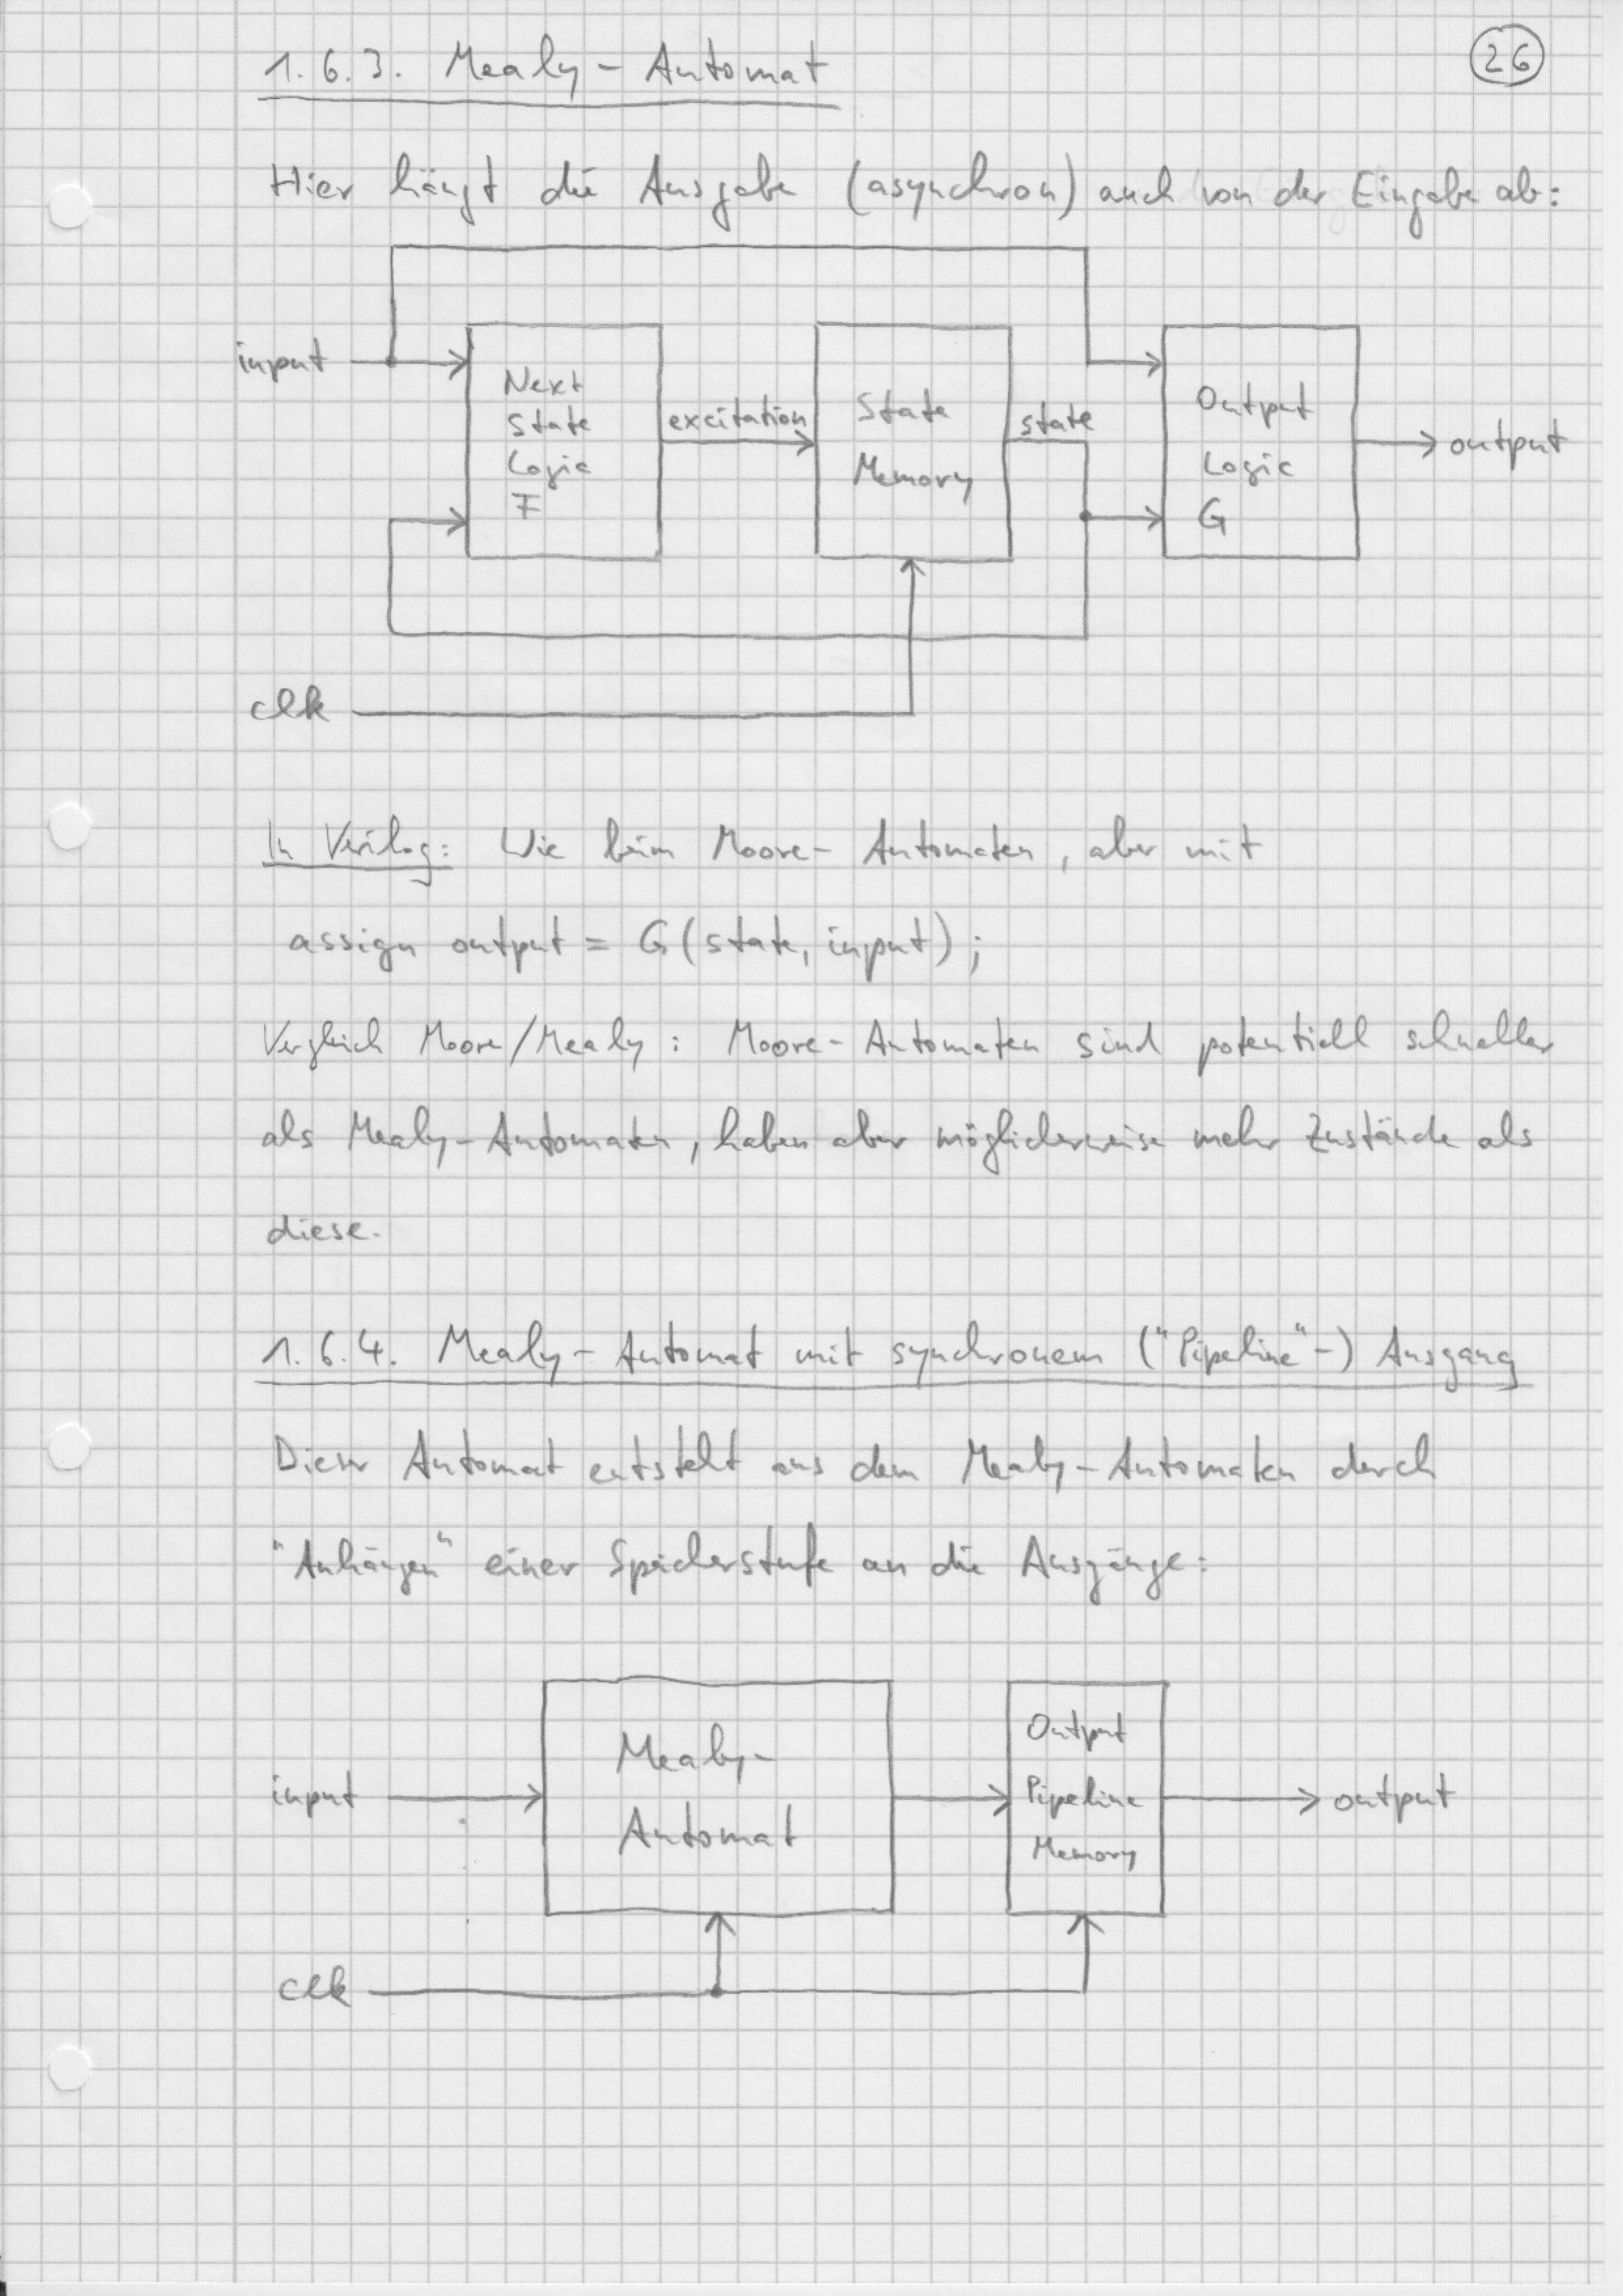 1.6.3. Mealy-Automat
26
Hier hängt die Ausgabe (asynchron) auch von der Eingabe ab:
input
Next
State
Logic
F
excitation
State
Memory
state
Output
Logic
G
output
clk
In Verilog: Wie beim Moore-Automaten, aber mit
assign output = G(state, input);
Vergleich Moore/Mealy: Moore-Automaten sind potentiell schneller
als Mealy-Automaten, haben aber möglicherweise mehr Zustände als
diese.
1.6.4. Mealy-Automat mit synchronem ("Pipeline"-) Ausgang
Dieser Automat entsteht aus dem Mealy-Automaten durch
"Anhängen" einer Speicherstufe an die Ausgänge:
input
Mealy-
Automat
Output
Pipeline
Memory
output
clk